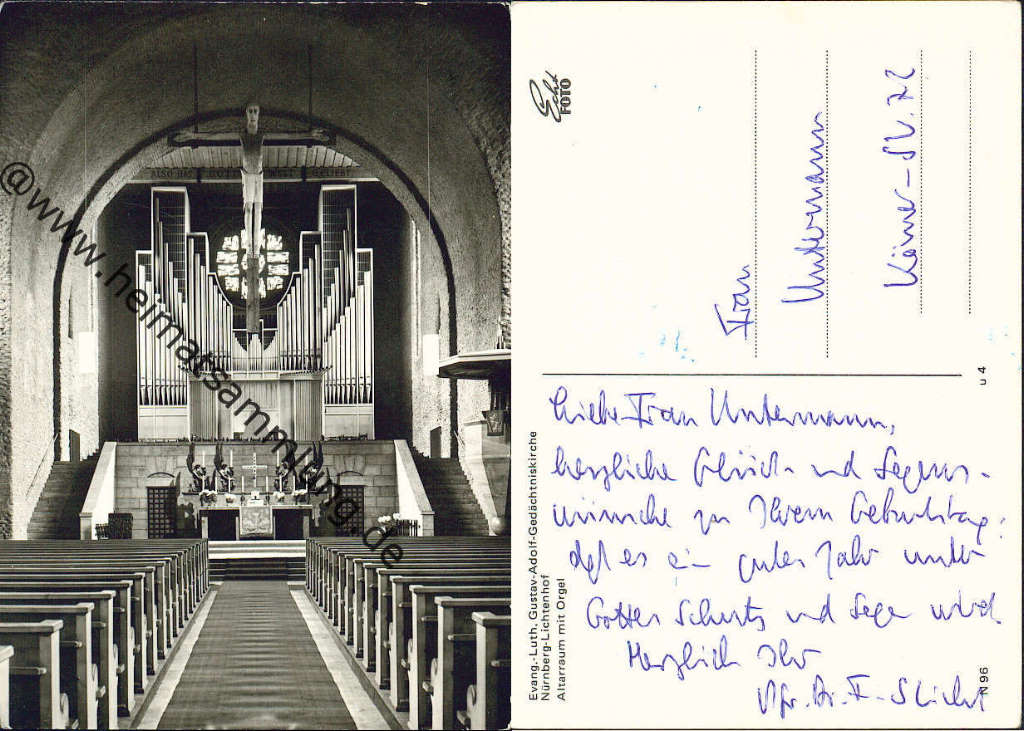 ALSO HAT GOTT WELT GELIEBT
@www.heimatsammlung.de
Echt
FOTO
Frau
Untermann
Körner-Str. 72
u 4
Evang.-Luth. Gustav-Adolf-Gedächtniskirche
Nürnberg-Lichtenhof
Altarraum mit Orgel
Liebe Frau Untermann,
herzliche Glück- und Segens-
wünsche zu Ihrem Geburtstag,
daß es ein gutes Jahr unter
Gottes Schutz und Segen wird.
Herzlich Ihr
Pfr. Dr. F.
N 96